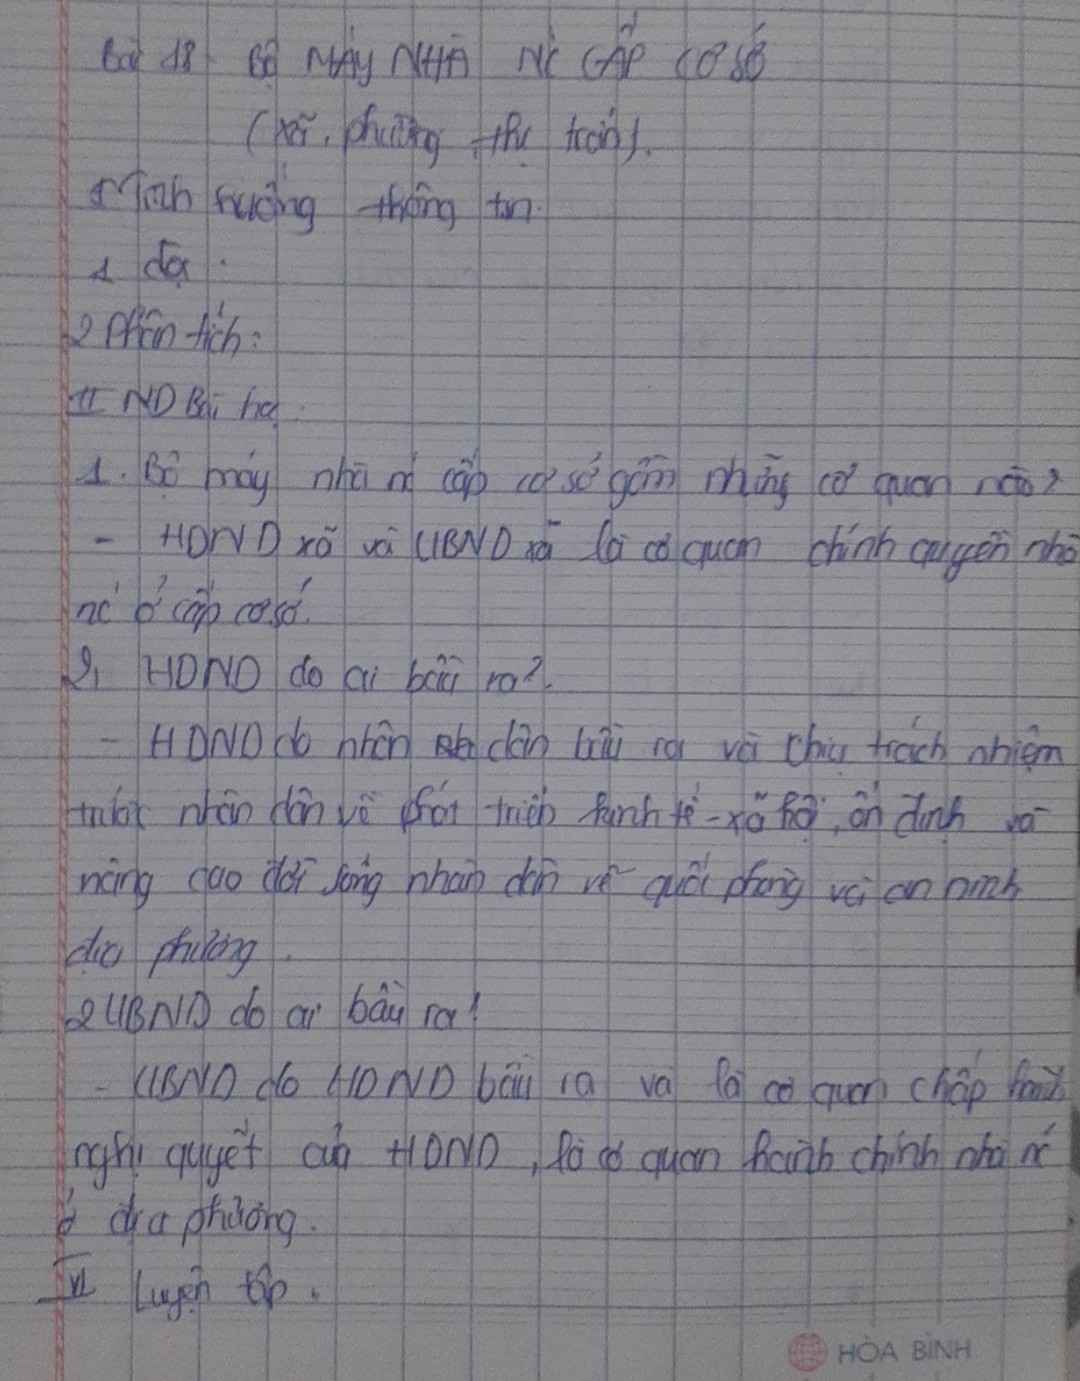 Bài 18 BỘ MÁY NHÀ NC CẤP CƠ SỞ
(xã, phường, thị trấn).
Tình huống thông tin.
1 đọc.
2 Phân tích:
II ND Bài học.
1. Bộ máy nhà nc cấp cơ sở gồm những cơ quan nào?
- HDND xã và UBND xã là cơ quan chính quyền nhà
nc ở cấp cơ sở.
2, HDND do ai bầu ra?
- HDND do nhân dân bầu ra và chịu trách nhiệm
trước nhân dân về phát triển kinh tế - xã hội, ổn định và
nâng cao đời sống nhân dân về quốc phòng và an ninh
địa phương.
2 UBND do ai bầu ra?
- UBND do HDND bầu ra và là cơ quan chấp hành
nghị quyết của HDND, là cơ quan hành chính nhà nc
ở địa phương.
Luyện tập.
HÒA BÌNH